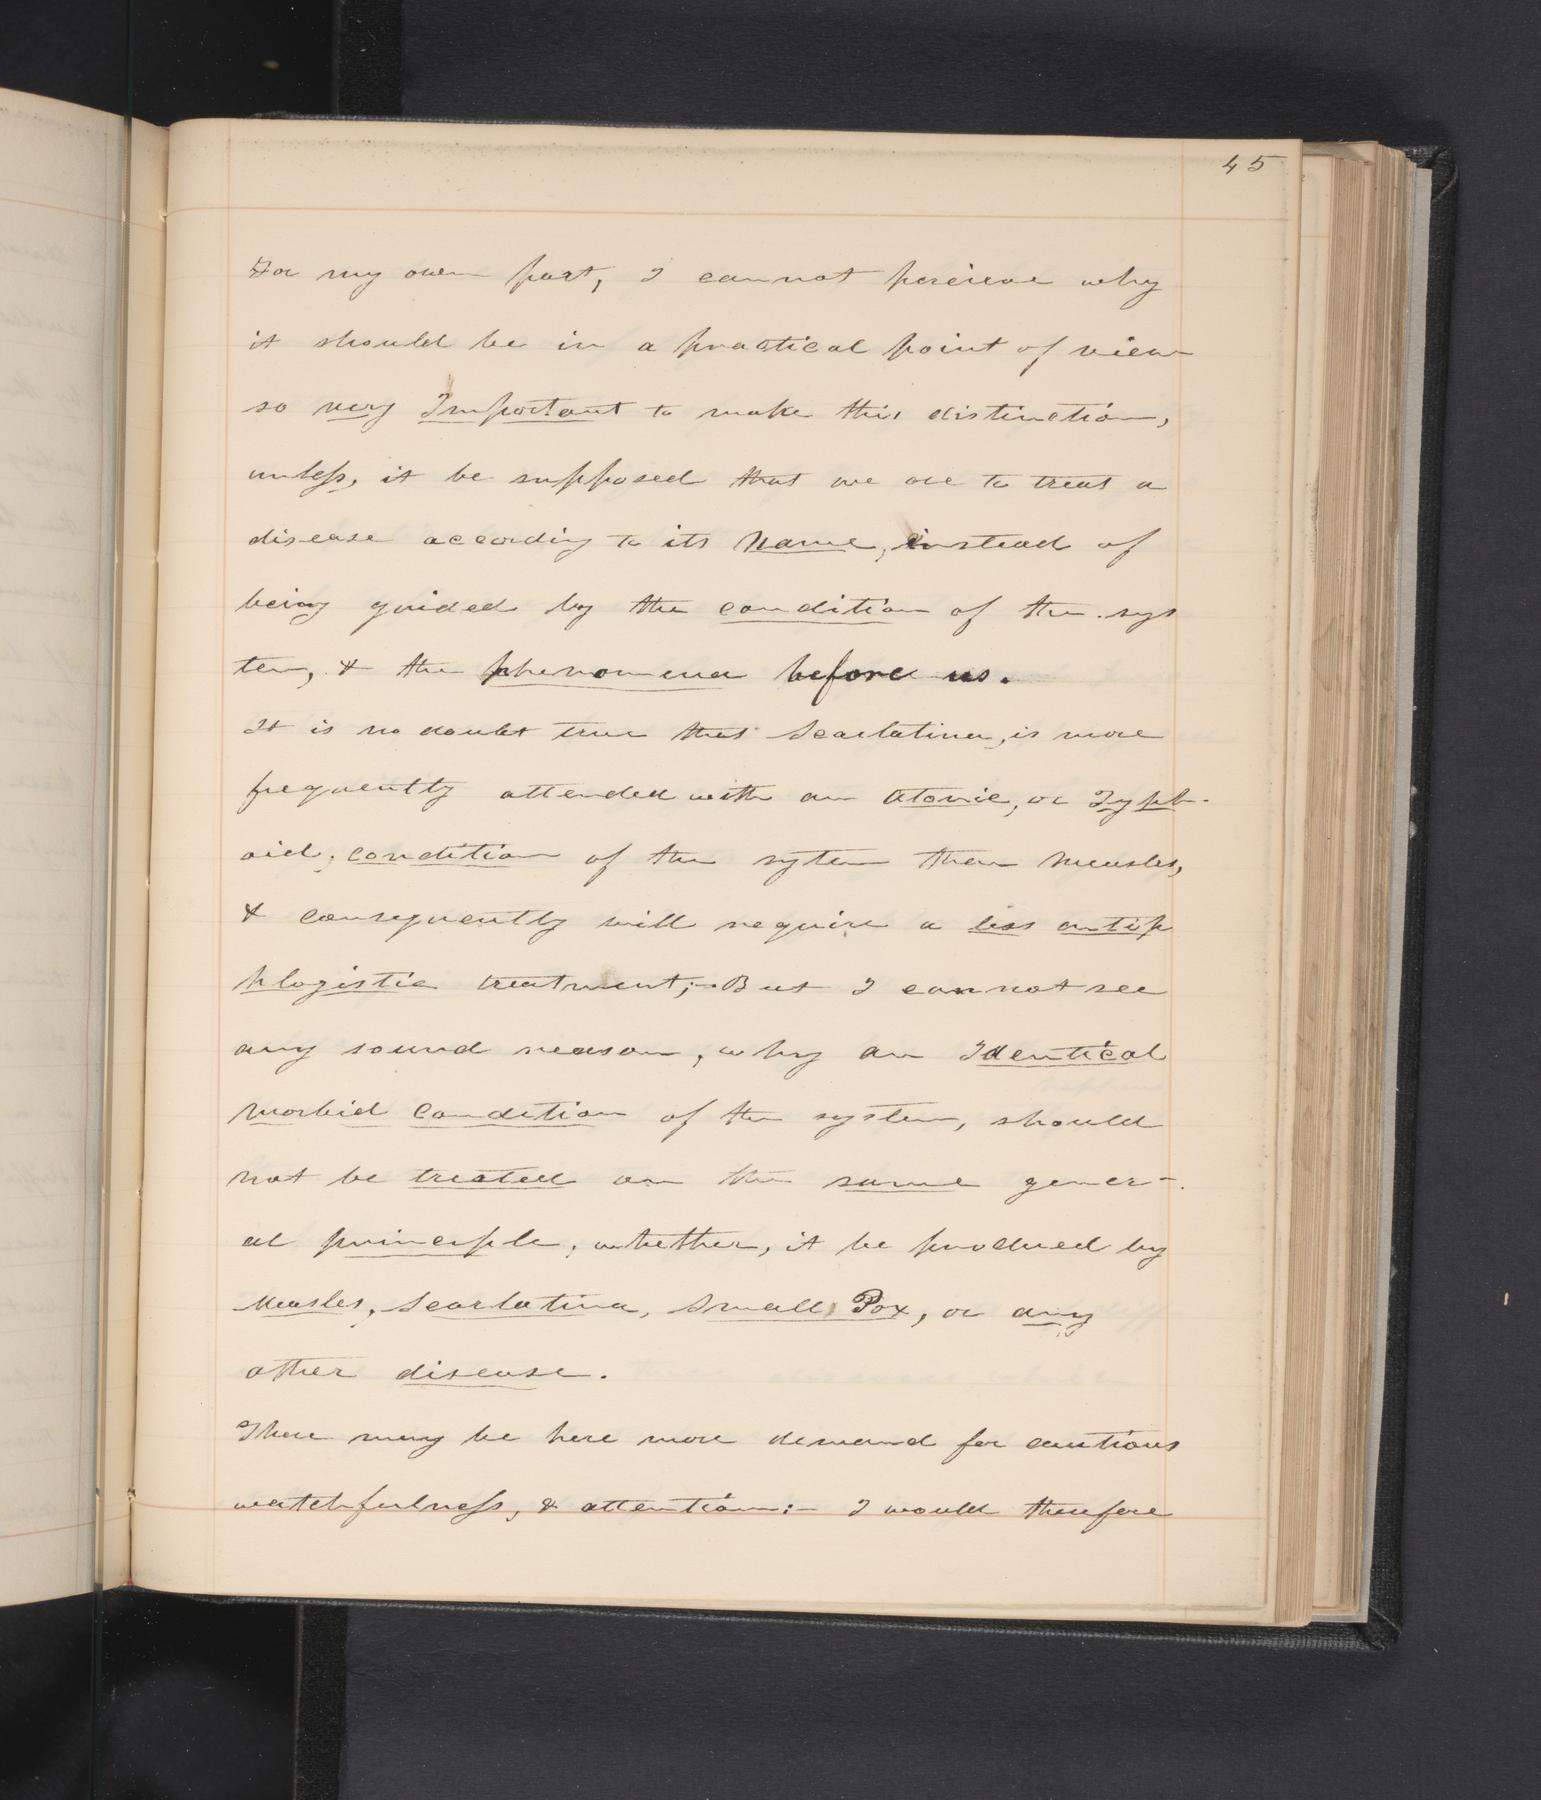 45
For my own part, I cannot percieve why
it should be in a practical point of view
so very Important to make this distinction,
unless, it be supposed that we are to treat a
disease according to its Name, instead of
being guided by the condition of the sys
tem, & the phenomena before us.
It is no doubt true that Scarlatina, is more
frequently attended with an atonic, or Typh-
oid, condition of the sytem than Measles,
& consequently will require a less antip
hlogistic treatment;- But I cannot see
any sound reason, why an Identical
morbid condition of the system, should
not be treated on the same gener-
al principle, whether, it be produced by
Measles, Scarlatina, Small Pox, or any
other disease.
There may be here more demand for cautious
watchfulness, & attention:- I would therefore